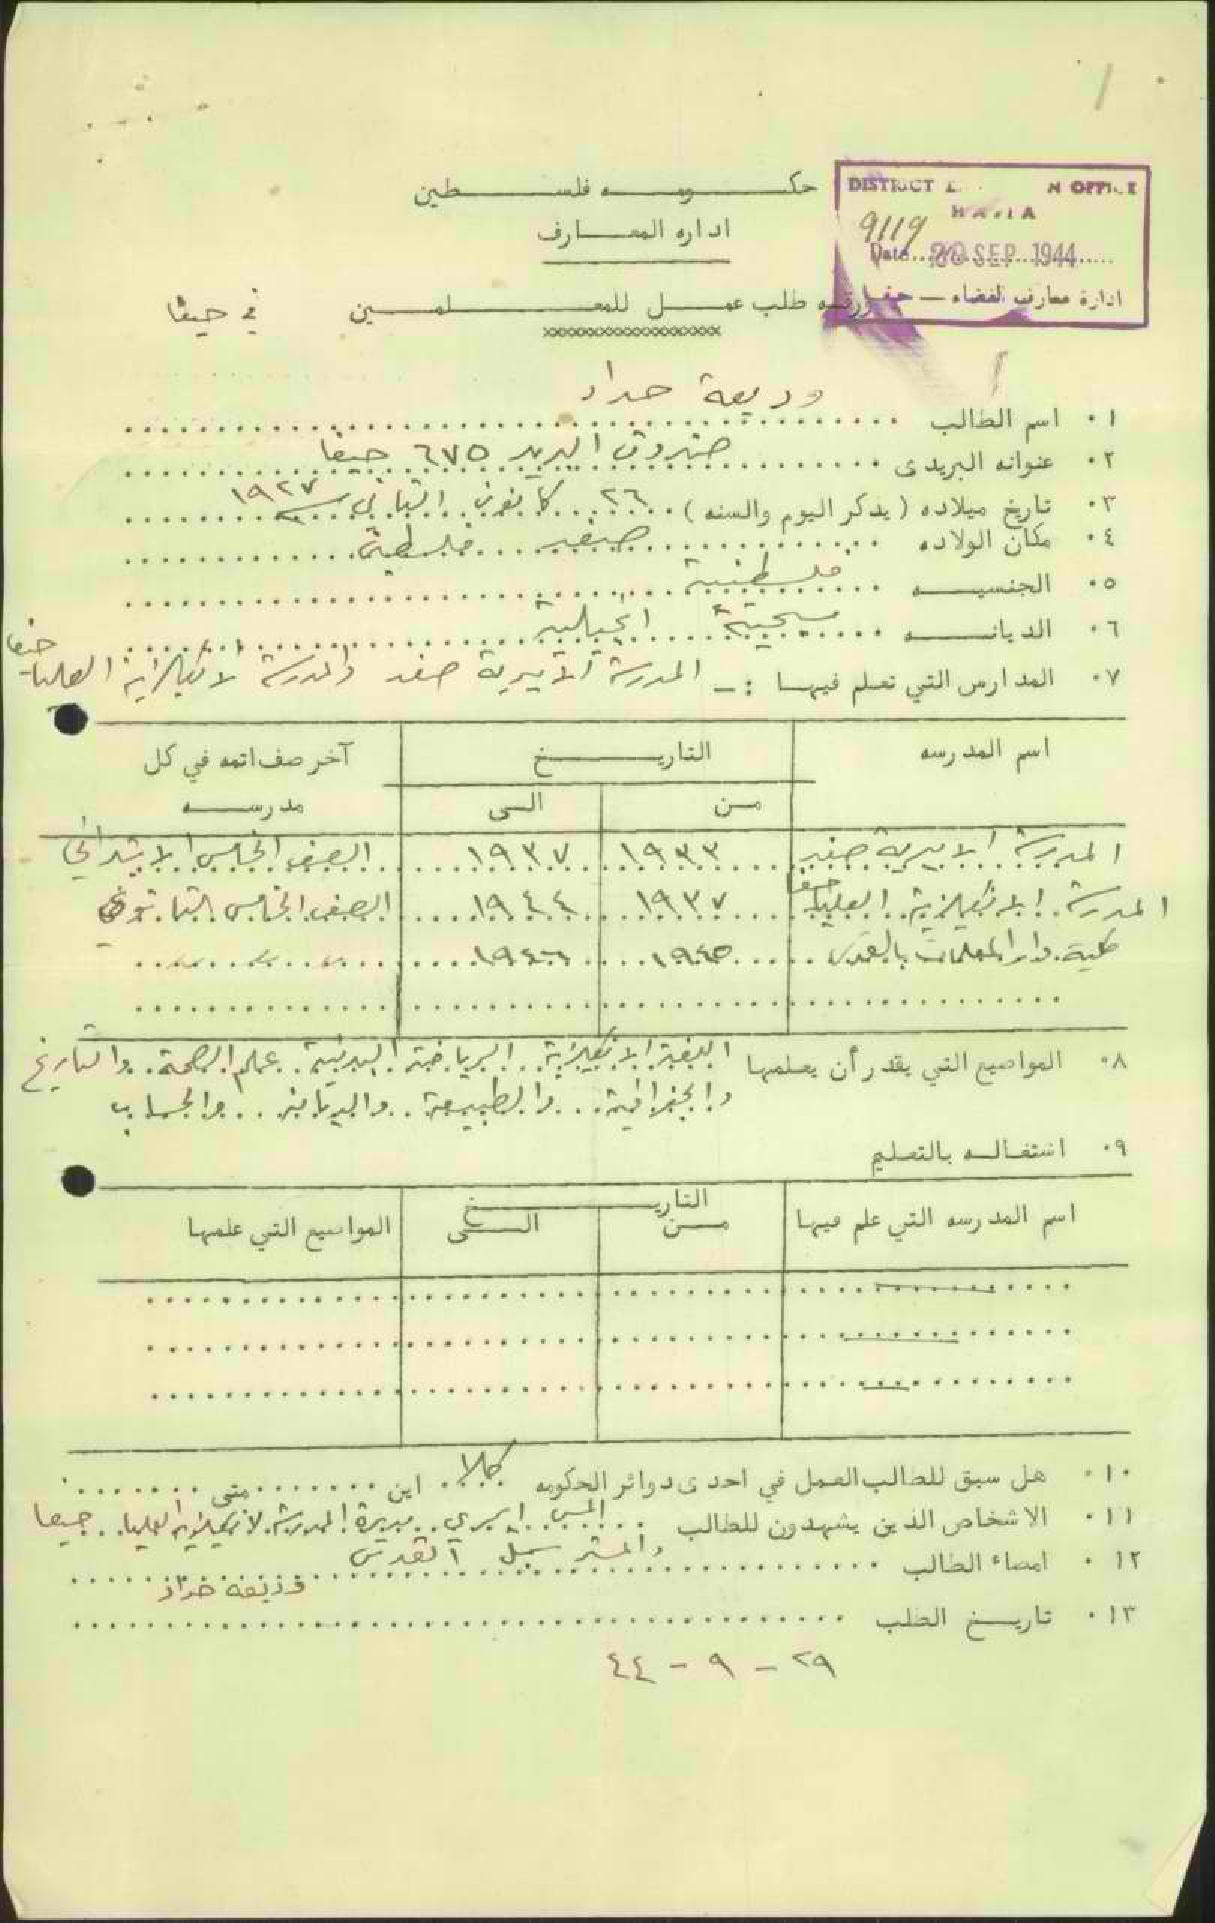 DISTRICT N OFFICE
HAIFA
9119
Date 20 SEP 1944
ادارة معارف لقضاء — حيفا
حكومه فلسطين
اداره المعارف
ورقه طلب عمل للمعلمين في حيفا
وديعة حداد
١٠ اسم الطالب
٢٠ عنوانه البريدى صندوق البريد ٦٧٥ حيفا
٣٠ تاريخ ميلاده (يذكر اليوم والسنه) ٢٦ كانون الثاني سنة ١٩٢٧
٤٠ مكان الولاده صفد فلسطين
٥٠ الجنسيه فلسطينية
٦٠ الديانه مسيحية انجيلية
٧٠ المدارس التي تعلم فيها :- المدرسة الاميرية صفد والمدرسة الانكليزية العليا حيفا
اسم المدرسه التاريخ آخر صف اتمه في كل مدرسه
من الى
المدرسة الاميرية صفد ١٩٣٣ ١٩٣٧ الصف الخامس الابتدائي
المدرسة الانكليزية العليا حيفا ١٩٣٧ ١٩٤٤ الصف الخامس الثانوي
كلية دار المعلمات بالقدس ١٩٤٥ ١٩٤٦
٨٠ المواضيع التي يقدر أن يعلمها اللغة الانكليزية. الرياضة البدنية. علم الصحة. والتاريخ
والجغرافية. والطبيعة. والديانة. والحساب
٩٠ اشتغاله بالتعليم
اسم المدرسه التي علم فيها التاريخ المواضيع التي علمها
من الى
١٠٠ هل سبق للطالب العمل في احدى دوائر الحكومه كلا اين متى
١١٠ الاشخاص الذين يشهدون للطالب المس ايري مديرة المدرسة الانكليزية العليا حيفا
والمستر سمبل القدس
١٢٠ امضاء الطالب وديعة حداد
١٣٠ تاريخ الطلب
٢٩ - ٩ - ٤٤